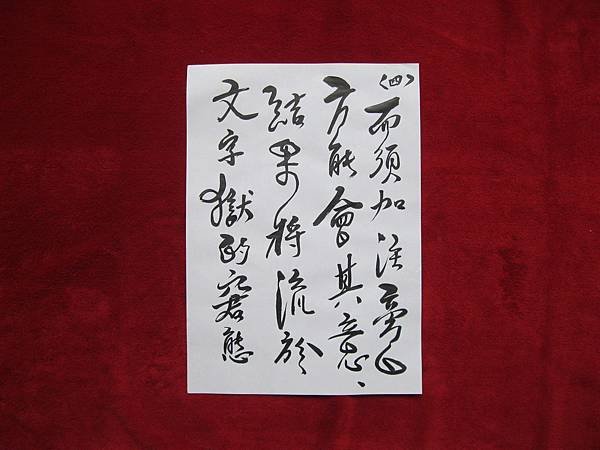 〈四〉而須加注旁白
方能會其意、
結果將流於
文字獄的窘態